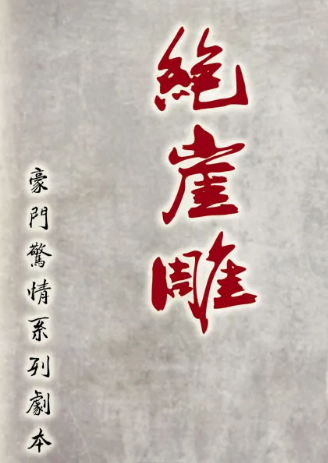 絕崖雕
豪門驚情系列劇本